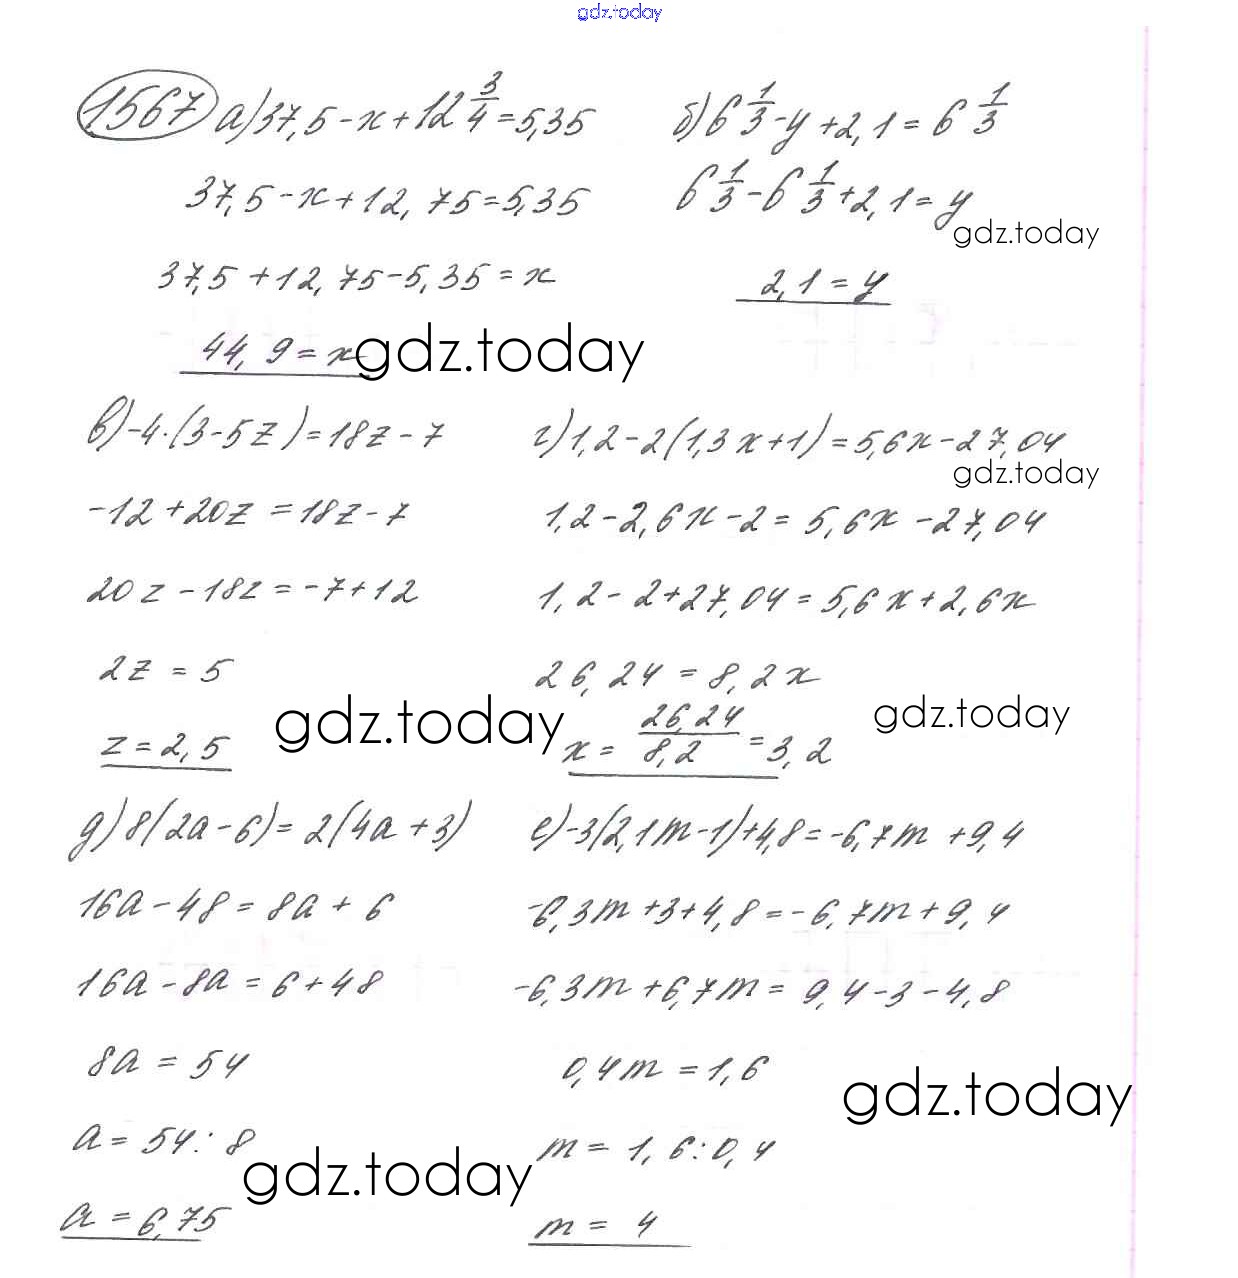 gdz.today
1567 а) 37,5 - x + 12 3/4 = 5,35
37,5 - x + 12,75 = 5,35
37,5 + 12,75 - 5,35 = x
44,9 = x
gdz.today
б) 6 1/3 - y + 2,1 = 6 1/3
6 1/3 - 6 1/3 + 2,1 = y
gdz.today
2,1 = y
в) -4·(3-5z) = 18z - 7
-12 + 20z = 18z - 7
20z - 18z = -7 + 12
2z = 5
z = 2,5
gdz.today
г) 1,2 - 2(1,3x + 1) = 5,6x - 27,04
gdz.today
1,2 - 2,6x - 2 = 5,6x - 27,04
1,2 - 2 + 27,04 = 5,6x + 2,6x
26,24 = 8,2x
gdz.today
x = 26,24/8,2 = 3,2
д) 8(2a - 6) = 2(4a + 3)
16a - 48 = 8a + 6
16a - 8a = 6 + 48
8a = 54
a = 54 : 8
gdz.today
a = 6,75
е) -3(2,1m - 1) + 4,8 = -6,7m + 9,4
-6,3m + 3 + 4,8 = -6,7m + 9,4
-6,3m + 6,7m = 9,4 - 3 - 4,8
0,4m = 1,6
gdz.today
m = 1,6 : 0,4
m = 4